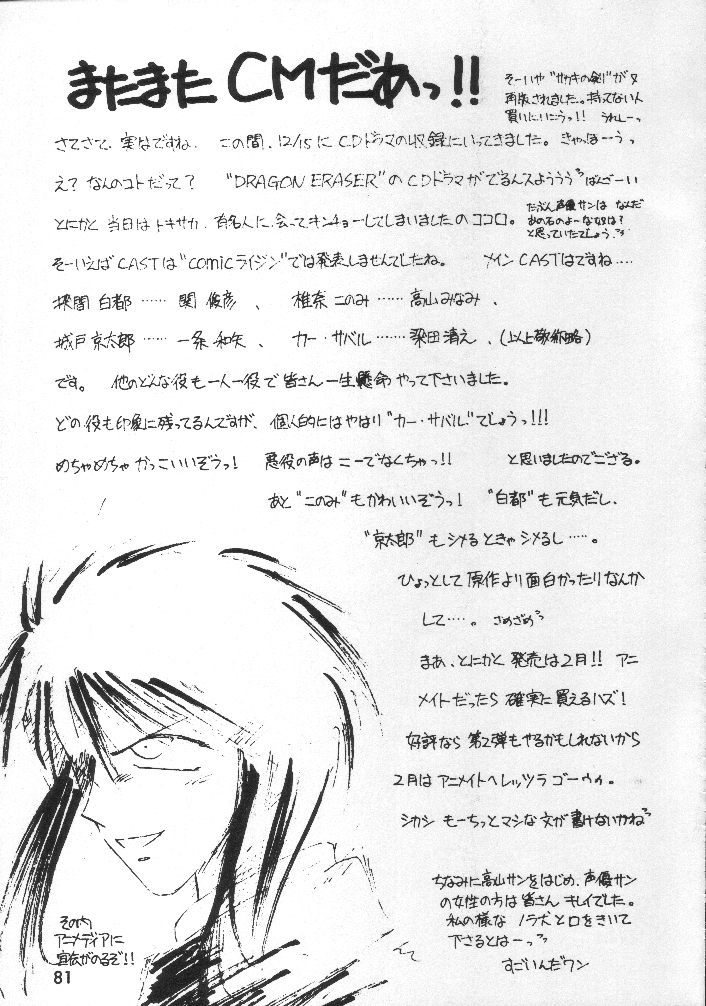 またまたCMだあっ!!
そーいや"サカキの剣"が又
再版されました。持ってない人
買いにいこうっ!! うれしーっ
さてさて、実はですね、この間、12/15にCDドラマの収録にいってきました。きゃっほーうっ
え?なんのコトだって? "DRAGON ERASER"のCDドラマがでるんスよううう ばんざーい
とにかく当日はドキサカ、有名人に会ってキンチョーしてしまいましたのココロ。
たぶん声優サンは なんだ
あの石のよーな奴は?
と思っていたでしょう。
そーいえばCASTは"comicライジン"では発表しませんでしたね。 メインCASTはですね....
探間 白都 …… 関 俊彦 、 椎奈このみ …… 高山みなみ 、
城戸京太郎 …… 一条和矢 、 カー・サバル …… 梁田清之 、(以上敬称略)
です。 他のどんな役も一人一役で皆さん一生懸命やって下さいました。
どの役も印象に残ってるんですが、個人的にはやはり"カー・サバル"でしょうっ!!!
めちゃめちゃかっこいいぞうっ! 悪役の声はこーでなくちゃっ!! と思いましたのでござる。
あと"このみ"もかわいいぞうっ! "白都"も元気だし、
"京太郎"もシメるときゃシメるし……。
ひょっとして原作より面白かったりなんか
して……。 さめざめ
まあ、とにかく発売は2月!! アニ
メイトだったら確実に買えるハズ!
好評なら第2弾もやるかもしれないから
2月はアニメイトへレッツラゴーウゥ。
シカシ もーちっとマシな文が書けないかね
ちなみに高山サンをはじめ、声優サン
の女性の方は皆さんキレイでした。
私の様なノラ犬と口をきいて
下さるとはーっ
すごいんだワン
その内
アニメディアに
宣伝がのるぞ!!
81